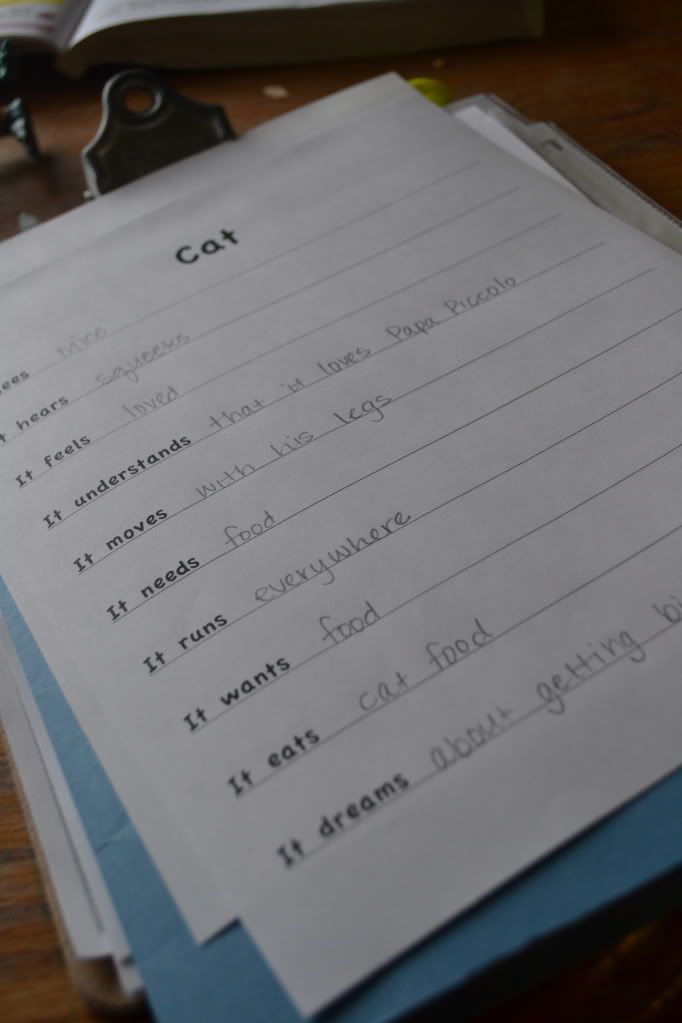 Cat
ees mice
t hears squeeks
It feels loved
It understands that it loves Papa Piccolo
It moves with his legs
It needs food
It runs everywhere
It wants food
It eats cat food
It dreams about getting bi